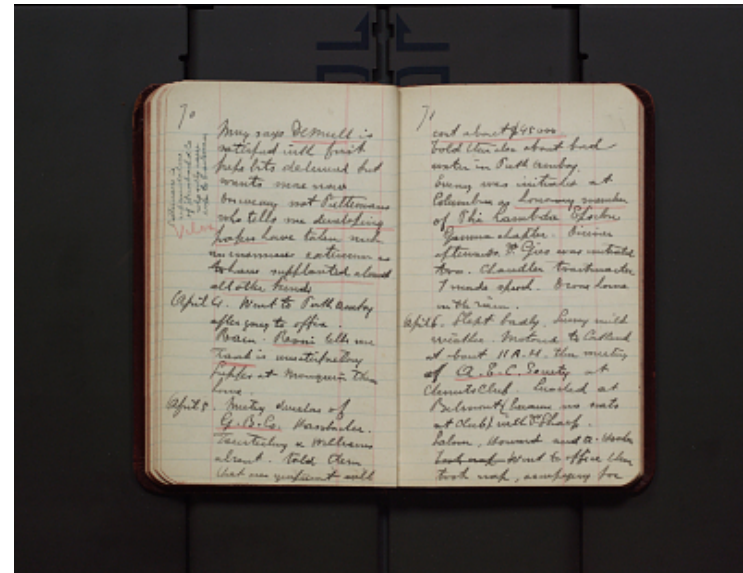 70
says DeMull is
satisfied with first
delivered but
wants more now
On way met Puttemans
who tells me developing
papers have taken such
an immense extension as
to have supplanted almost
all other kinds
Velox
April 4. Went to Perth Amboy
after going to office.
Rain. Rossi tells me
Tank is unsatisfactory
Supper at Mouquin then
home.
April 5. Meeting directors of
G.B.Co. Hasslacher.
& Williams
absent. told them
that new equipment will
71
cost about $45000
told them also about bad
water in Perth Amboy.
Evening was initiated at
Columbia as honorary member
of Phi Lambda Epsilon
Gamma chapter. Dinner
afterwards. Dr Gies was initiated
too. Chandler toastmaster
I made speech. Drove home
in the rain.
April 6. Slept badly. Sunny mild
weather. Motored to
at about 11 A.M. then meeting
of A.E.C. Society at
Chemists Club. Lunched at
Belmont (because no seats
at Club) with Dr Sharp.
Howard and
Took nap Went to office then
took nap, for